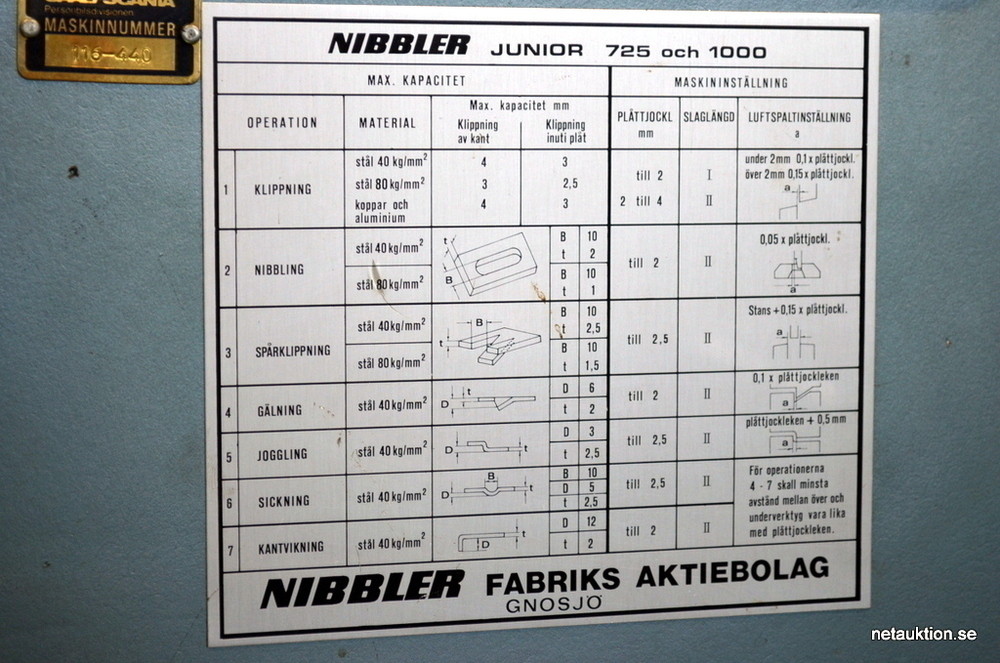 SCANIA
Personbilsdivisionen
MASKINNUMMER
116-440
NIBBLER JUNIOR 725 och 1000
MAX. KAPACITET
MASKININSTÄLLNING
OPERATION
MATERIAL
Max. kapacitet mm
Klippning av kant
Klippning inuti plåt
PLÅTTJOCKL mm
SLAGLÄNGD
LUFTSPALTINSTÄLLNING a
1 KLIPPNING
stål 40 kg/mm² 4 3
stål 80 kg/mm² 3 2,5
koppar och aluminium 4 3
till 2 I
2 till 4 II
under 2mm 0,1 x plåttjockl.
över 2mm 0,15 x plåttjockl.
a
2 NIBBLING
stål 40 kg/mm²
stål 80 kg/mm²
t
B
B 10
t 2
B 10
t 1
till 2 II
0,05 x plåttjockl.
a
3 SPÅRKLIPPNING
stål 40 kg/mm²
stål 80 kg/mm²
B
t
B 10
t 2,5
B 10
t 1,5
till 2,5 II
Stans + 0,15 x plåttjockl.
a
4 GÄLNING
stål 40 kg/mm²
t
D
D 6
t 2
till 2 II
0,1 x plåttjockleken
a
5 JOGGLING
stål 40 kg/mm²
D
t
D 3
t 2,5
till 2,5 II
plåttjockleken + 0,5 mm
a
6 SICKNING
stål 40 kg/mm²
B
D
t
B 10
D 5
t 2,5
till 2,5 II
För operationerna
4 - 7 skall minsta
avstånd mellan över och
underverktyg vara lika
med plåttjockleken.
7 KANTVIKNING
stål 40 kg/mm²
t
D
D 12
t 2
till 2 II
NIBBLER FABRIKS AKTIEBOLAG
GNOSJÖ
netauktion.se